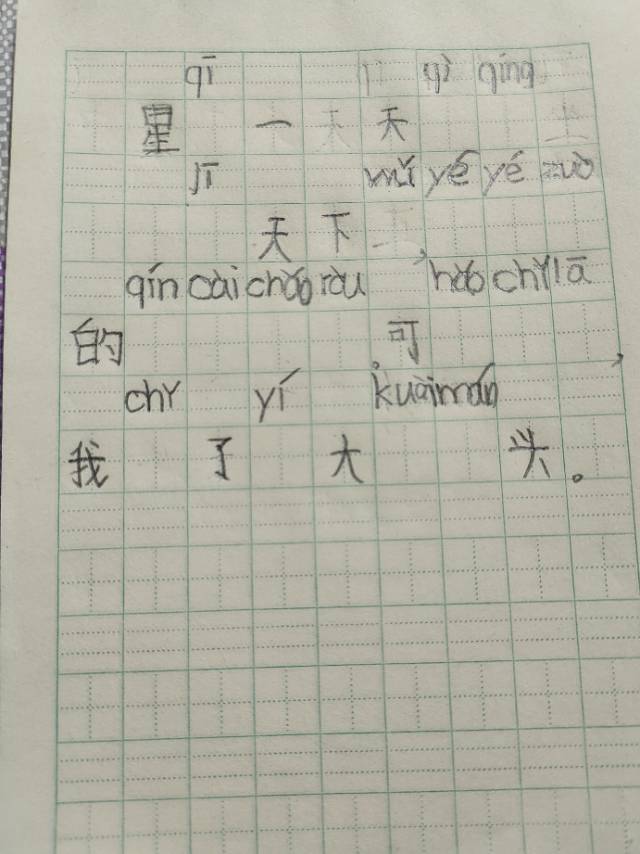 qī qì qíng
星 一 天 天
jī wǔ yé yé zuò
天 下
qín cài chǎo ròu ， hǎo chī lā
的 。 可 ，
chī yí kuài mán
我 了 大 头 。